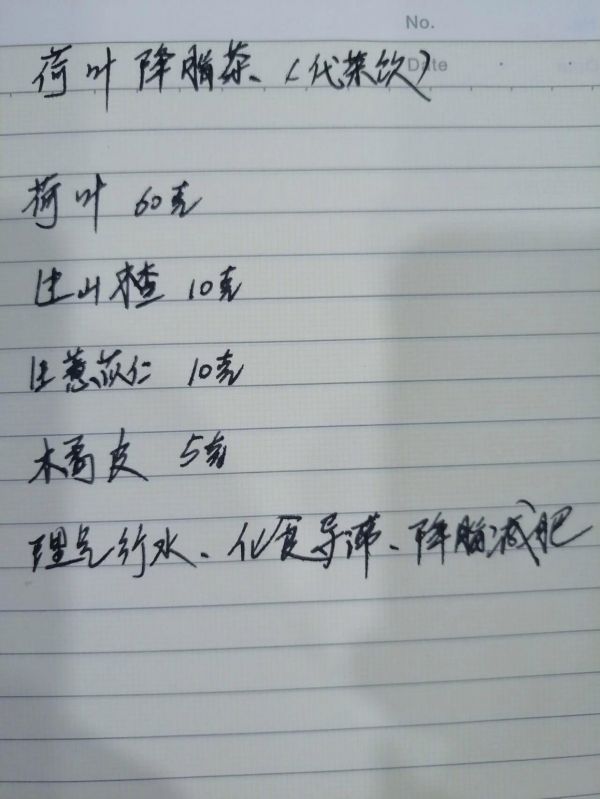 No.
Date
荷叶降脂茶、(代茶饮)
荷叶 60克
生山楂 10克
生薏苡仁 10克
橘皮 5克
理气行水、化食导滞、降脂减肥